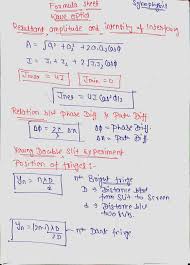 Formula sheet
Wave optics
Resultant amplitude and intensity of
A = √a₁² + a₂² + 2a₁a₂cosϕ
I = I₁ + I₂ + 2√I₁I₂ cosϕ
Imax = 4I Imin = 0
Relation b/w phase Diff & Path Diff
Δϕ = 2π/λ Δx
Δϕ = phase Diff.
Young Double Slit Experiment
Position of fringes :-
yn = nλD/d
n⁺ Bright fringe
D → Distance
from slit to screen
d → Distance b/w
two
yn = (2n-1)λD/2d
n⁺ Dark fringe